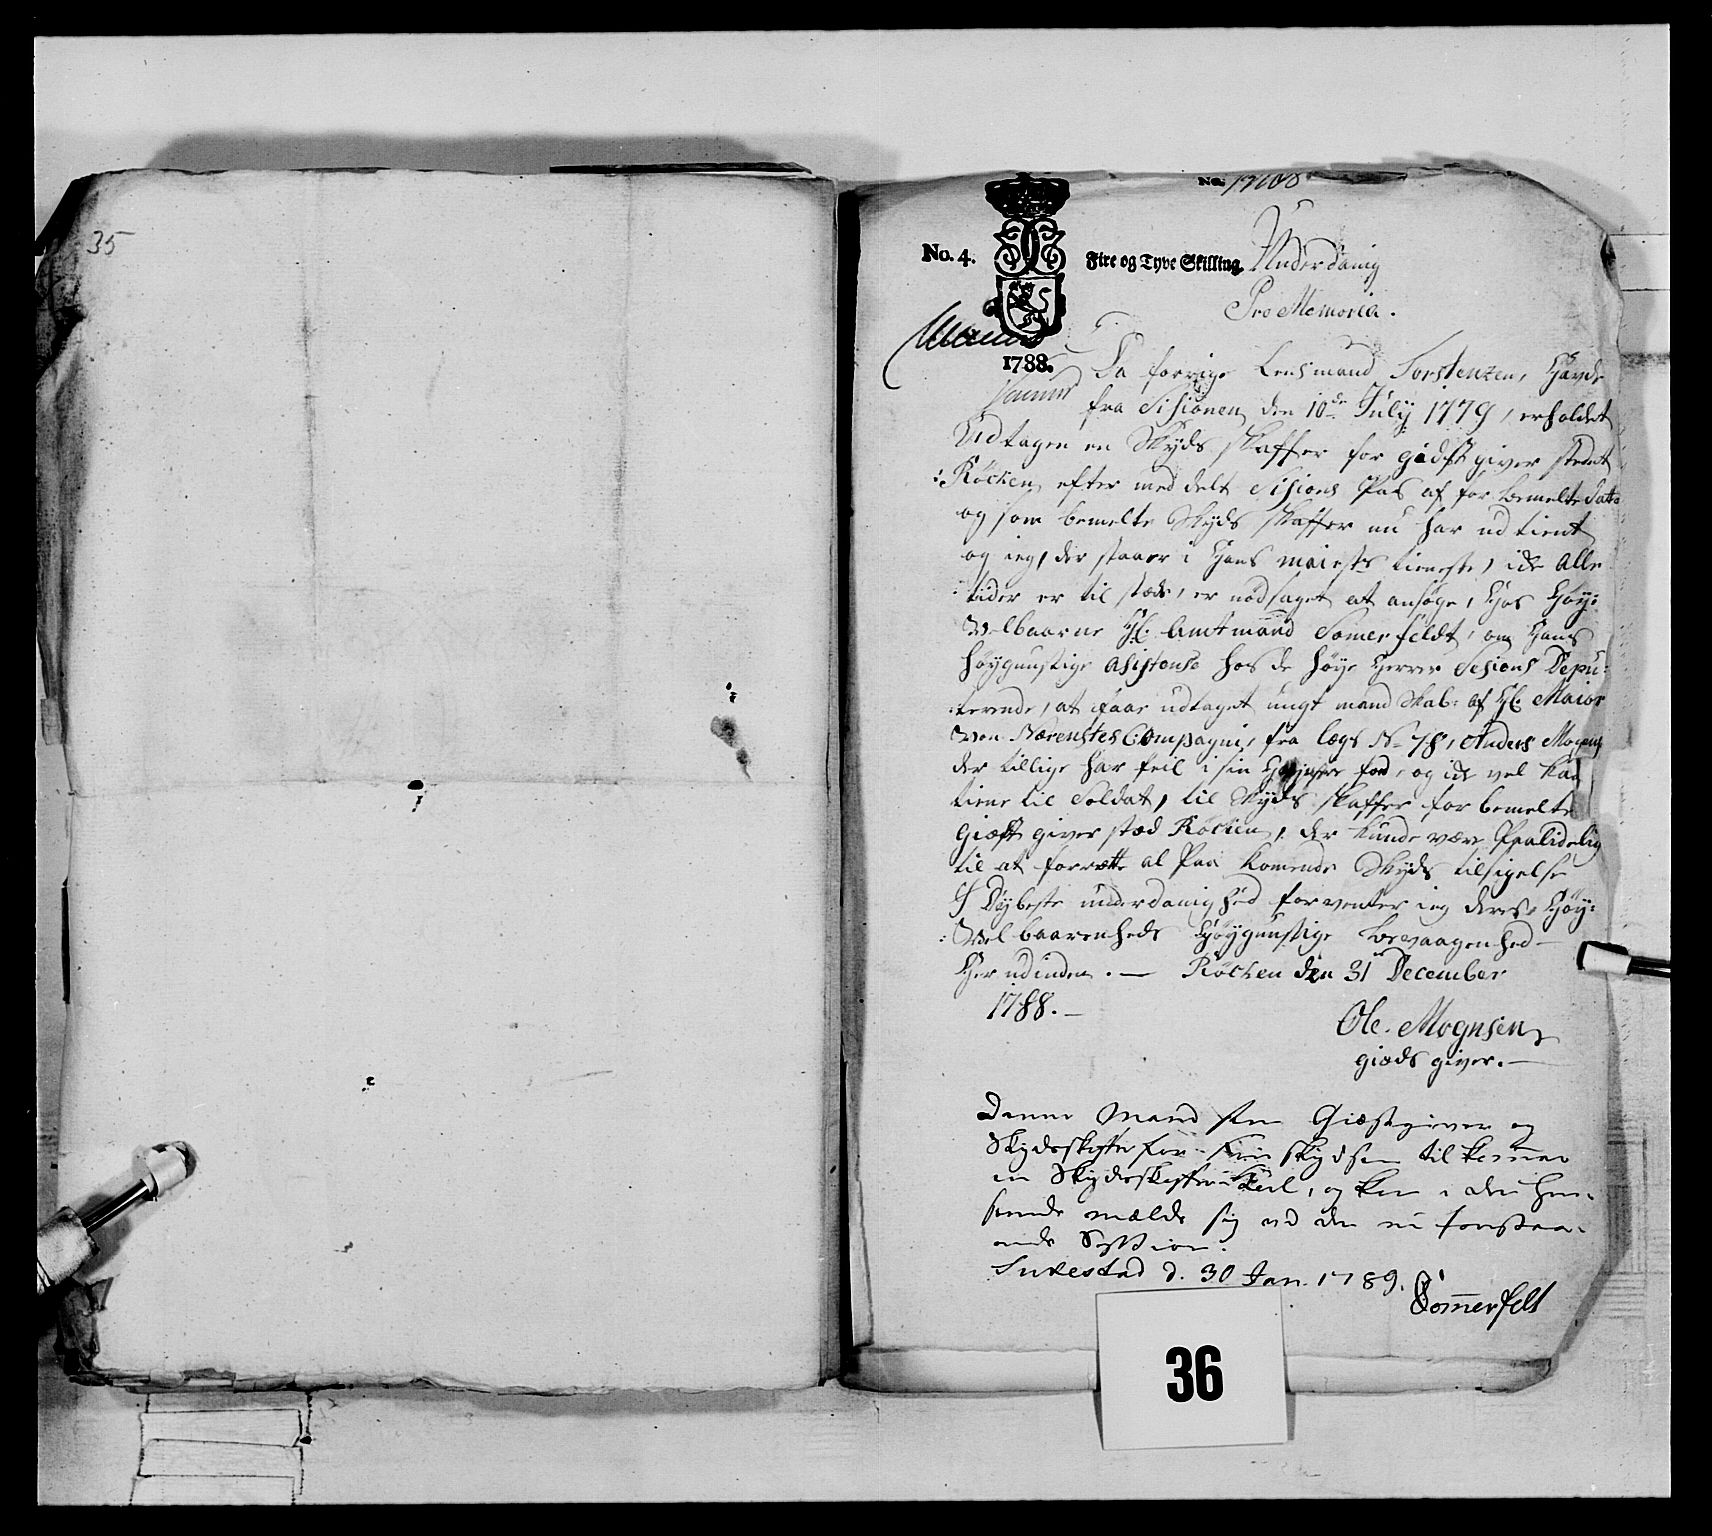 35
No. 17600
No. 4. Fire og Tyve Skilling.
Underdanig
Pro Memoria.
1788.
Da forrige Lensmand Torstensen, Havde
fra Sesionen den 10de July 1779, erholdet
Udtagen en Skyds skaffer for gidst giver stedet
Röcken efter med delt Sesions Pas af for bemelte Datto
og som bemelte Skyds skaffer nu har udtient
og ieg, der staaer i Hans maiests tieneste, ide Alle
tider er til stæde, er nödsaget at ansöge, Hos Höy:
Velbaarne Hr. Amtmand Somerfeldt, om Hans
höygunstige asistense hos de höye Herrer Sesions Depu:
:terende, at faae udtaget ungt mand skab: af Hr. Maior
Von Nærenstes Compagni, fra lægs No 78, Anders Mogens
der tillige har feil i sin Höyre fod, og ide vel kan
tiene til Soldat, til Skyds skaffer for bemelte
Giæst giver stæd Röcken, der kunde være Paalidelig
til at forrette al Paa komende Skyds tilsigelse
I Dybeste underdanighed forventer ieg deres Höy:
:Velbaarenheds Höygunstige bevaagenhed
Herudinden. — Röcken den 31 December
1788. —
Ole Mognsen
giæds giver. —
Denne Mand som Giæstgiver og
Skydsskaffer for skydsen til kommer
en Skydsskaffer Karl, og kan i den Hen-
seende mælde sig ved den nu forestaa-
ende Session.
Sukestad d. 30 Jan. 1789.
Sommerfelt
36